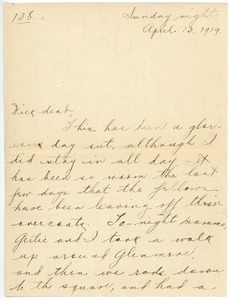 138
Sunday night,
April 13, 1919.
Nick dear,
This has been a glor-
ious day out, although I
did stay in all day - It
has been so warm the last
few days that the fellows
have been leaving off their
overcoats. To-night mamma,
Gertie and I took a walk
up around Glenmore,
and then we rode down
to the square, and had a